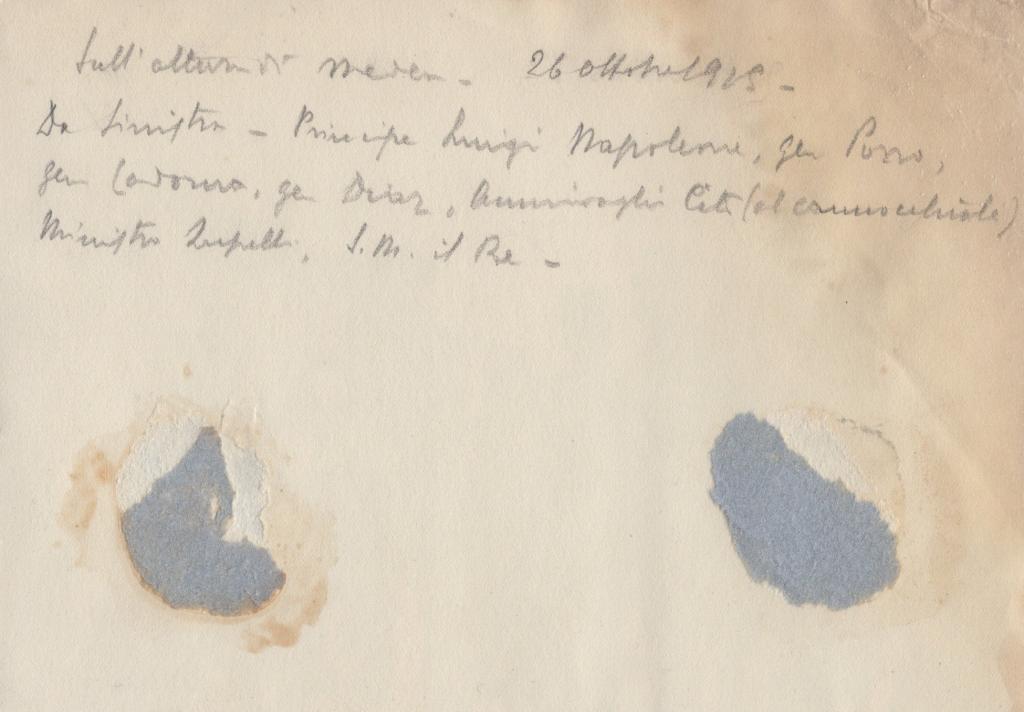 Sull'altura di Medea - 26 ottobre 1915 -
Da Sinistra - Principe Luigi Napoleone, gen Porro,
gen Cadorna, gen Diaz, Ammiraglio (al cannocchiale)
Ministro Zupelli, S.M. il Re -